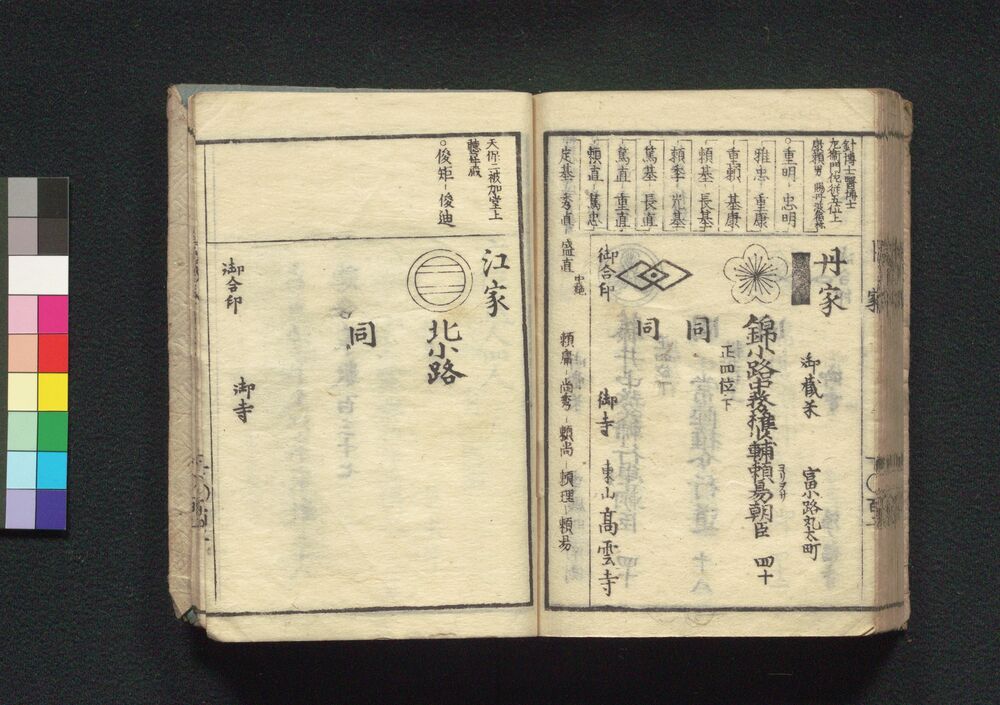 丹家
針博士醫博士
左衛門佐従五位上
康頼男 賜丹波宿祢
○重明-忠明
雅忠-重康
重頼-基康
頼基-長基
頼季-光基
篤基-長直
篤直-重直
頼直-篤忠
定基-秀直
盛直
中絶
頼庸-尚秀-頼尚-頼理-頼易
御蔵米
富小路丸太町
錦小路中務権少輔頼易朝臣
ヨリヲサ
四十
正四位下
同
同
御合印
御寺
東山
高雲寺
天保二被加堂上
聴昇殿
○俊矩-俊迪
江家
北小路
同
御合印
御寺